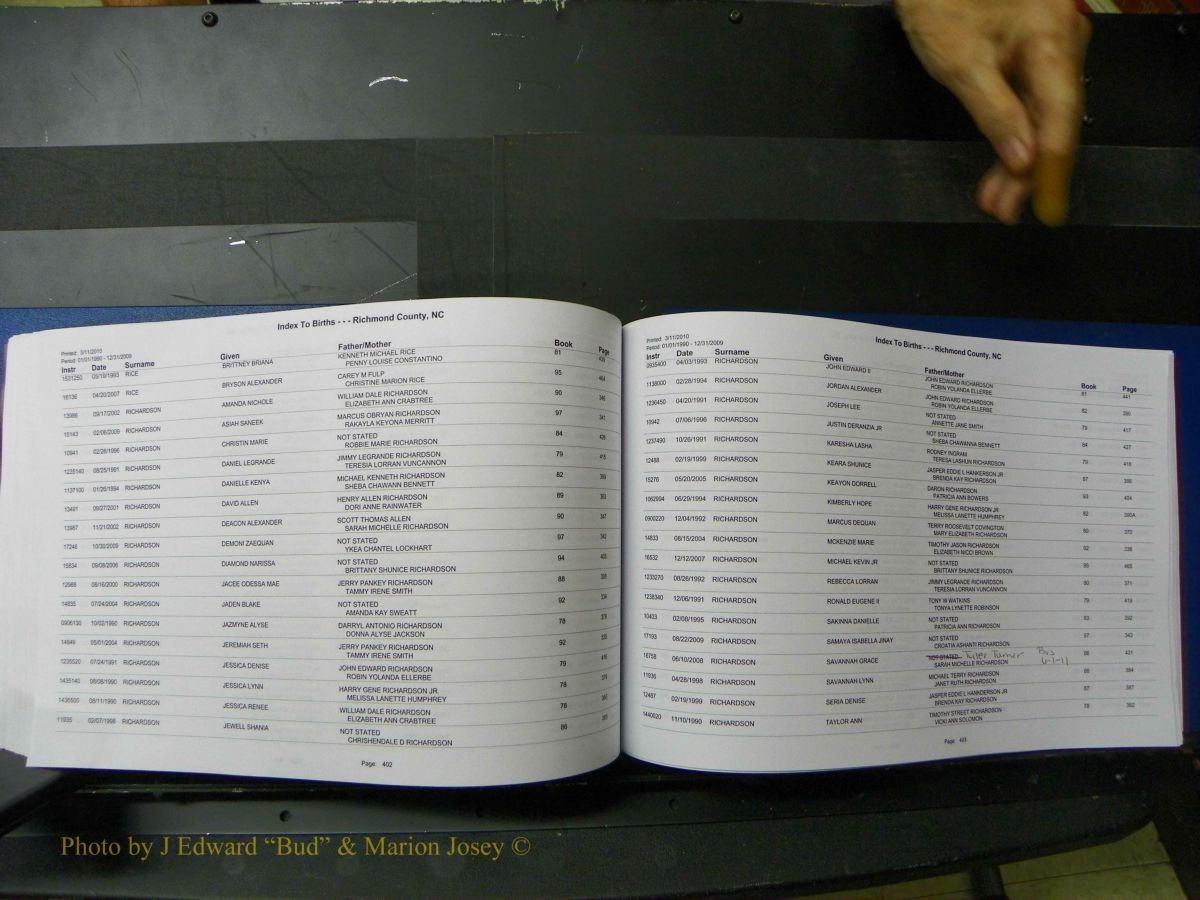 Index To Births - - - Richmond County, NC
Printed: 3/11/2010
Period: 01/01/1990 - 12/31/2009
Instr Date Surname Given Father/Mother Book Page
1501250 05/19/1993 RICE BRITTNEY BRIANA KENNETH MICHAEL RICE 81
PENNY LOUISE CONSTANTINO
16136 04/20/2007 RICE BRYSON ALEXANDER CAREY M FULP 95 464
CHRISTINE MARION RICE
13986 09/17/2002 RICHARDSON AMANDA NICHOLE WILLIAM DALE RICHARDSON 90 346
ELIZABETH ANN CRABTREE
15143 02/06/2009 RICHARDSON ASIAH SANEEK MARCUS OBRYAN RICHARDSON 97 341
RAKAYLA KEYONA MERRITT
10941 02/28/1996 RICHARDSON CHRISTIN MARIE NOT STATED 84 426
ROBBIE MARIE RICHARDSON
1235140 08/25/1991 RICHARDSON DANIEL LEGRANDE JIMMY LEGRANDE RICHARDSON 79 415
TERESIA LORRAN VUNCANNON
1137100 01/26/1994 RICHARDSON DANIELLE KENYA MICHAEL KENNETH RICHARDSON 82 389
SHEBA CHAWANN BENNETT
13491 09/27/2001 RICHARDSON DAVID ALLEN HENRY ALLEN RICHARDSON 89 393
DORI ANNE RAINWATER
13987 11/21/2002 RICHARDSON DEACON ALEXANDER SCOTT THOMAS ALLEN 90 347
SARAH MICHELLE RICHARDSON
17246 10/30/2009 RICHARDSON DEMONI ZAEQUAN NOT STATED 97 342
YKEA CHANTEL LOCKHART
15834 09/08/2006 RICHARDSON DIAMOND NARISSA NOT STATED 94 405
BRITTANY SHUNICE RICHARDSON
12988 08/16/2000 RICHARDSON JACEE ODESSA MAE JERRY PANKEY RICHARDSON 88
TAMMY IRENE SMITH
14835 07/24/2004 RICHARDSON JADEN BLAKE NOT STATED 92 334
AMANDA KAY SWEATT
0906130 10/02/1990 RICHARDSON JAZMYNE ALYSE DARRYL ANTONIO RICHARDSON 78 378
DONNA ALYSE JACKSON
14849 05/01/2004 RICHARDSON JEREMIAH SETH JERRY PANKEY RICHARDSON 92 335
TAMMY IRENE SMITH
1235520 07/24/1991 RICHARDSON JESSICA DENISE JOHN EDWARD RICHARDSON 79 416
ROBIN YOLANDA ELLERBE
1435140 08/08/1990 RICHARDSON JESSICA LYNN HARRY GENE RICHARDSON JR 78 379
MELISSA LANETTE HUMPHREY
1436500 08/11/1990 RICHARDSON JESSICA RENEE WILLIAM DALE RICHARDSON 78 380
ELIZABETH ANN CRABTREE
11935 02/07/1998 RICHARDSON JEWELL SHANIA NOT STATED 86 383
CHRISHENDALE D RICHARDSON
Page: 402
Index To Births - - - Richmond County, NC
Printed: 3/11/2010
Period: 01/01/1990 - 12/31/2009
Instr Date Surname Given Father/Mother Book Page
0935400 04/03/1993 RICHARDSON JOHN EDWARD II JOHN EDWARD RICHARDSON 81 441
ROBIN YOLANDA ELLERBE
1138000 02/28/1994 RICHARDSON JORDAN ALEXANDER JOHN EDWARD RICHARDSON 82 390
ROBIN YOLANDA ELLERBE
1236450 04/20/1991 RICHARDSON JOSEPH LEE NOT STATED 79 417
ANNETTE JANE SMITH
10942 07/06/1996 RICHARDSON JUSTIN DERANZIA JR NOT STATED 84 427
SHEBA CHAWANNA BENNETT
1237490 10/26/1991 RICHARDSON KARESHA LASHA RODNEY INGRAM 79 418
TERESA LASHUN RICHARDSON
12488 02/19/1999 RICHARDSON KEARA SHUNICE JASPER EDDIE L HANKERSON JR 87 386
BRENDA KAY RICHARDSON
15276 05/20/2005 RICHARDSON KEAYON DORRELL DARON RICHARDSON 93 404
PATRICIA ANN BOWERS
1062994 06/29/1994 RICHARDSON KIMBERLY HOPE HARRY GENE RICHARDSON JR 82 390A
MELISSA LANETTE HUMPHREY
0900220 12/04/1992 RICHARDSON MARCUS DEQUAN TERRY ROOSEVELT COVINGTON 80 370
MARY ELIZABETH RICHARDSON
14833 08/15/2004 RICHARDSON MCKENZIE MARIE TIMOTHY JASON RICHARDSON 92 336
ELIZABETH NICCI BROWN
16532 12/12/2007 RICHARDSON MICHAEL KEVIN JR NOT STATED 95 465
BRITTANY SHUNICE RICHARDSON
1233270 08/26/1992 RICHARDSON REBECCA LORRAN JIMMY LEGRANDE RICHARDSON 80 371
TERESIA LORRAN VUNCANNON
1238340 12/06/1991 RICHARDSON RONALD EUGENE II TONY W WATKINS 79 419
TONYA LYNETTE ROBINSON
10403 02/08/1995 RICHARDSON SAKINNA DANIELLE NOT STATED 83 392
PATRICIA ANN RICHARDSON
17193 08/22/2009 RICHARDSON SAMAYA ISABELLA JINAY NOT STATED 97 343
CROATIA ASHANTI RICHARDSON
16758 06/10/2008 RICHARDSON SAVANNAH GRACE NOT STATED Tyler Turner 96 421
SARAH MICHELLE RICHARDSON 6-1-11
11936 04/28/1998 RICHARDSON SAVANNAH LYNN MICHAEL TERRY RICHARDSON 86 384
JANET RUTH RICHARDSON
12487 02/19/1999 RICHARDSON SERIA DENISE JASPER EDDIE L HANKNDERSON JR 87 387
BRENDA KAY RICHARDSON
1440020 11/10/1990 RICHARDSON TAYLOR ANN TIMOTHY STREET RICHARDSON 78 382
VICKI ANN SOLOMON
Page: 403
Photo by J Edward “Bud” & Marion Josey ©